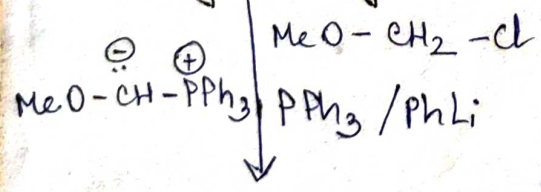 MeO - CH2 - Cl
⊖
⊕
MeO - C̈H - PPh3
PPh3 / PhLi